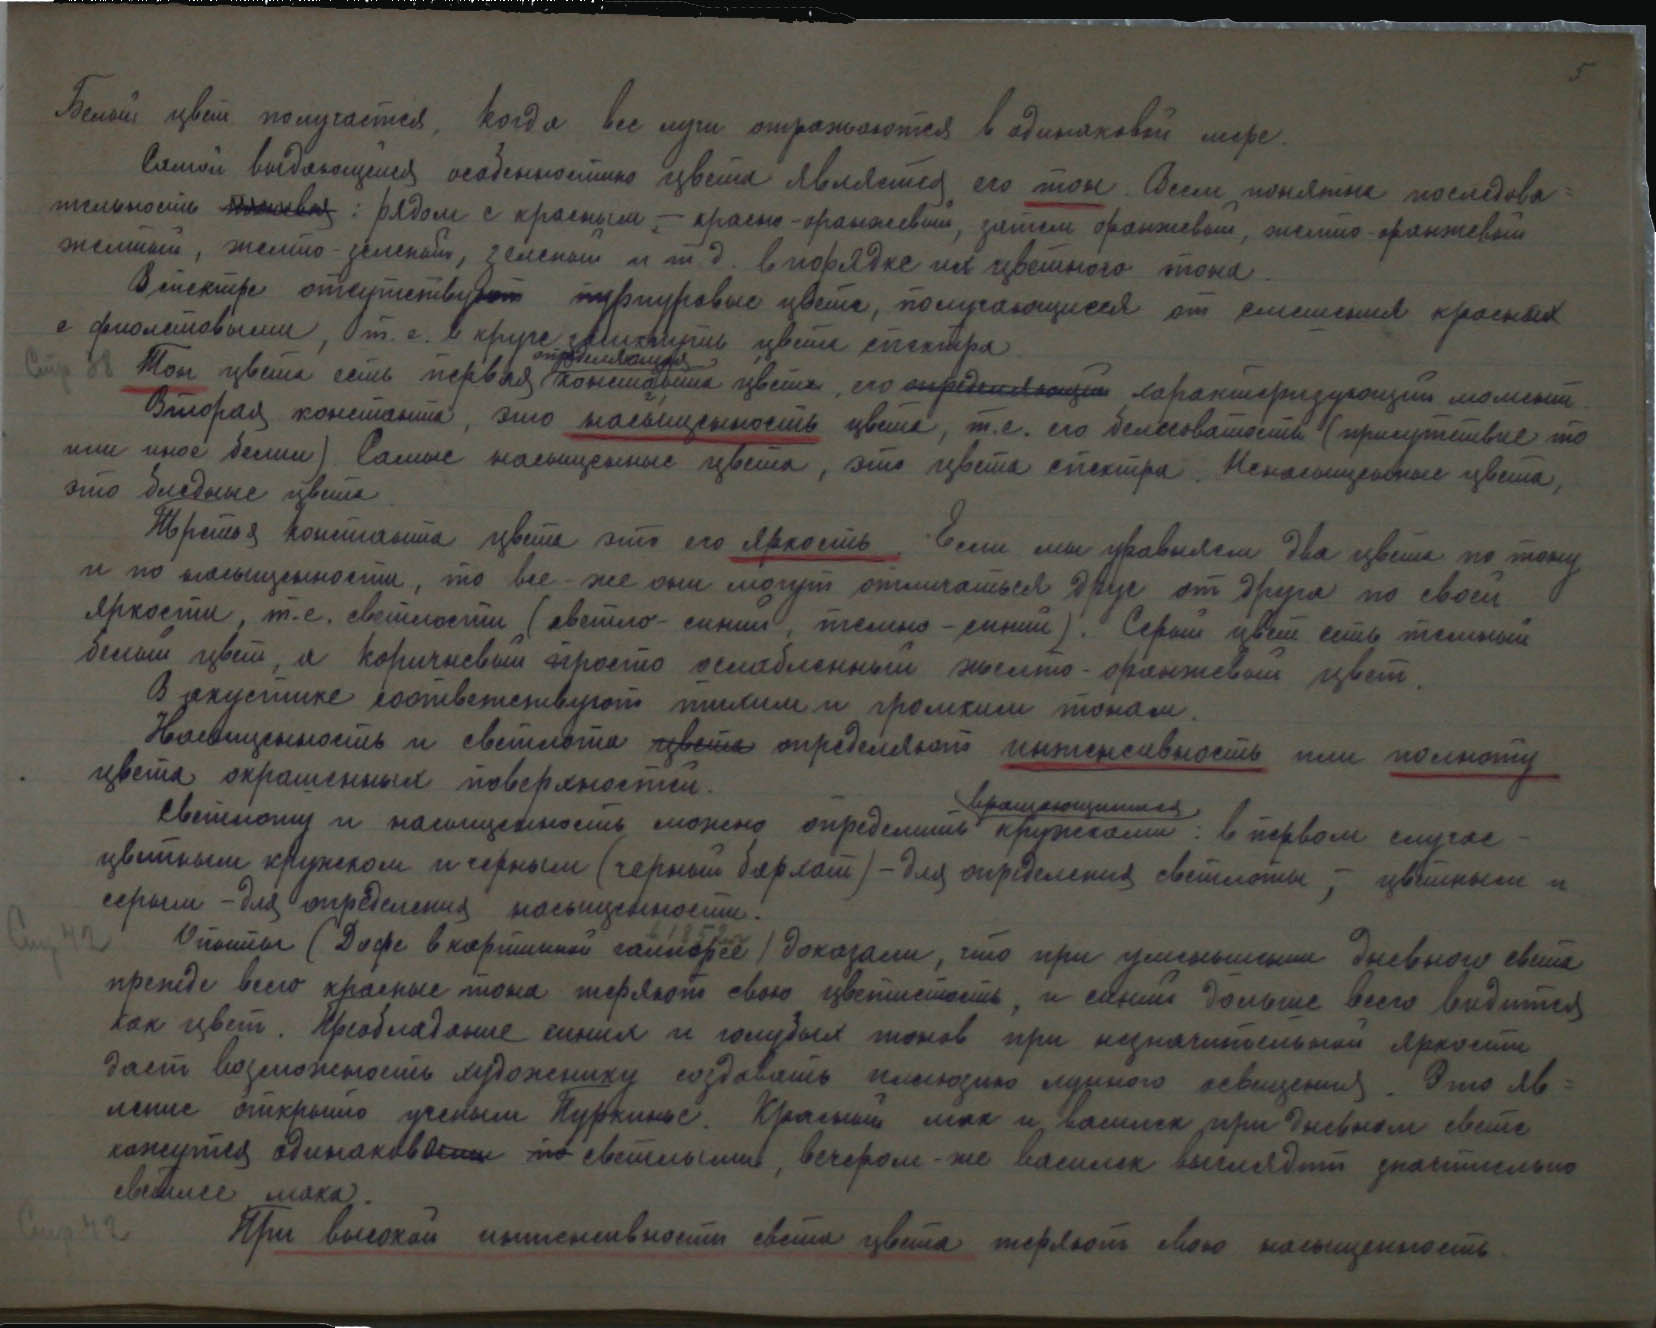 5
Белый цвет получается, когда все лучи отражаются в одинаковой мере.
Самой выдающейся особенностью цвета является его тон. Всем понятна последова=
тельность : рядом с красным, – красно-оранжевый, затем оранжевый, желто-оранжевый
желтый, желто-зеленый, зеленый и т.д. в порядке их цветного тона.
В спектре отсутствуют пурпуровые цвета, получающиеся от смешения красных
с фиолетовыми, т.е. в круге замкнуть цвета спектра.
определяющая
Стр 38 Тон цвета есть первая константа цвета, его определяющий характеризующий момент.
Вторая константа, это насыщенность цвета, т.е. его белесоватость (присутствие то
или иное белил) Самые насыщенные цвета, это цвета спектра. Ненасыщенные цвета,
это бледные цвета.
Третья константа цвета это его яркость. Если мы уравняем два цвета по тону
и по насыщенности, то все-же они могут отличаться друг от друга по своей
яркости, т.е. светлости (светло-синий, темно-синий). Серый цвет есть темный
белый цвет, а коричневый просто ослабленный желто-оранжевый цвет.
В акустике соответствуют тихим и громким тонам.
Насыщенность и светлота цвета определяют интенсивность или полноту
цвета окрашенных поверхностей.
вращающимися
Светлоту и насыщенность можно определить кружками : в первом случае –
цветным кружком и черным (черный бархат) – для определения светлоты, – цветным и
серым – для определения насыщенности.
Стр 42 Опыты (Дофе в картинной галлерее) доказали, что при уменьшении дневного света
прежде всего красные тона теряют свою цветистость, и синий дольше всего видится
как цвет. Преобладание синих и голубых тонов при незначительной яркости
дает возможность художнику создавать иллюзию лунного освещения. Это яв=
ление открыто ученым Пуркинье. Красный мак и василек при дневном свете
кажутся одинаково светлыми, вечером-же василек выглядит значительно
светлее мака.
Стр 42 При высокой интенсивности света цвета теряют свою насыщенность.